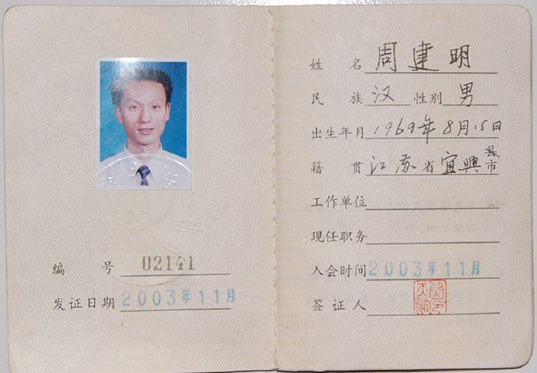 编号 02141
发证日期 2003年11月
姓名 周建明
民族 汉 性别 男
出生年月 1969年8月15日
籍贯 江苏省宜興县市
工作单位
现任职务
入会时间 2003年11月
签证人